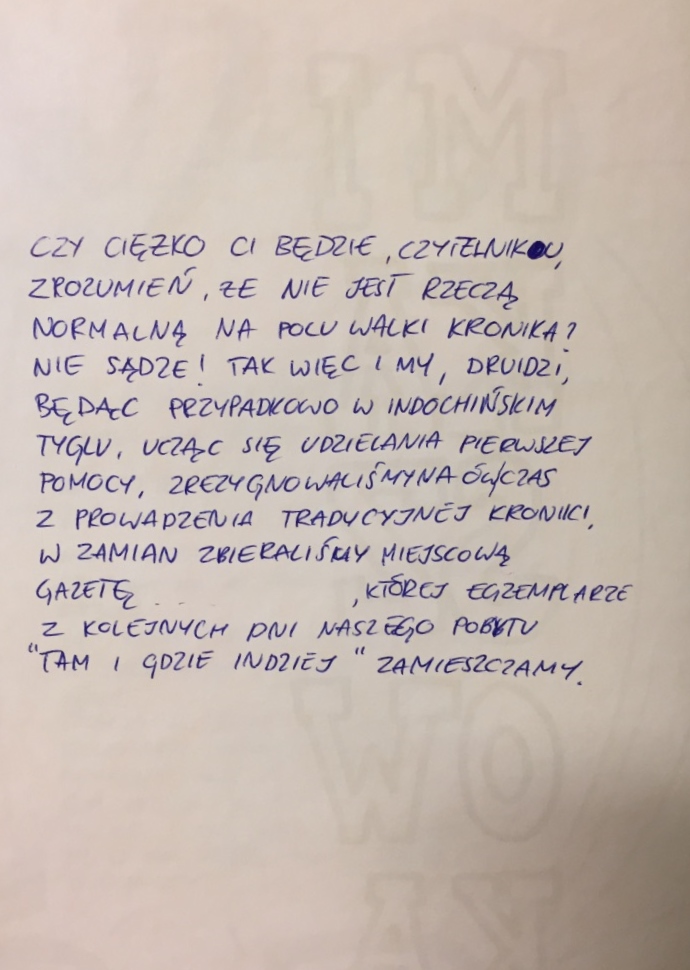 CZY CIĘŻKO CI BĘDZIE, CZYTELNIKOU,
ZROZUMIEŃ, ŻE NIE JEST RZECZĄ
NORMALNĄ NA POLU WALKI KRONIKA?
NIE SĄDZE! TAK WIĘC I MY, DRUIDZI,
BĘDĄC PRZYPADKOWO W INDOCHIŃSKIM
TYGLU, UCZĄC SIĘ UDZIELANIA PIERWSZEJ
POMOCY, ZREZYGNOWALIŚMY NA ÓWCZAS
Z PROWADZENIA TRADYCYJNEJ KRONIKI.
W ZAMIAN ZBIERALIŚMY MIEJSCOWĄ
GAZETĘ ... , KTÓREJ EGZEMPLARZE
Z KOLEJNYCH DNI NASZEGO POBYTU
"TAM I GDZIE INDZIEJ" ZAMIESZCZAMY.